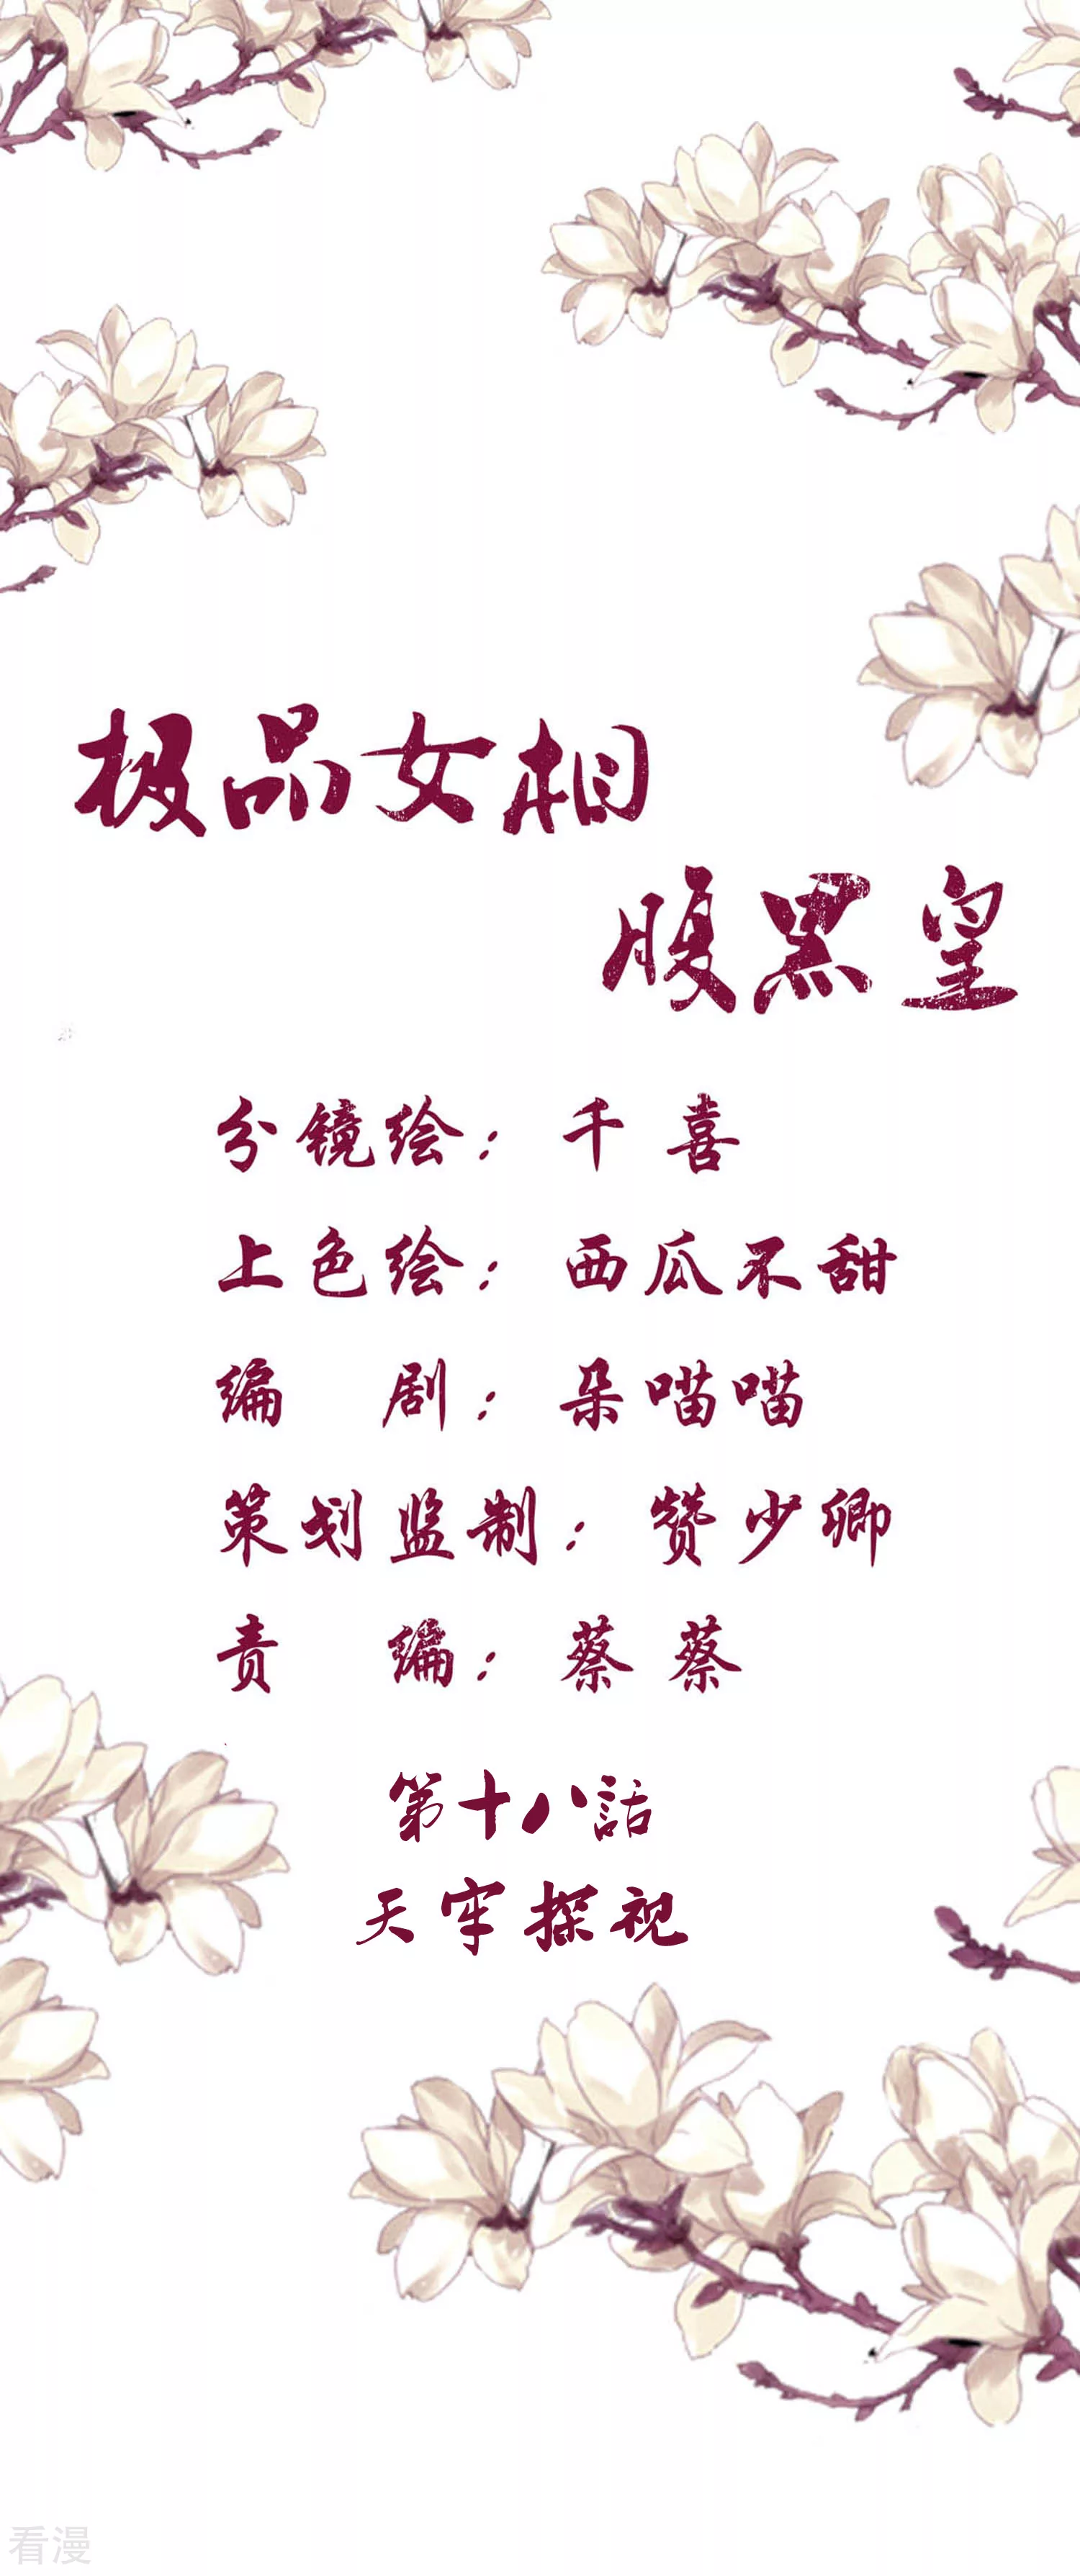 极品女相
腹黑皇
分镜绘：千喜
上色绘：西瓜不甜
编 剧：朵喵喵
策划监制：赞少卿
责 编：蔡蔡
第十八話
天牢探视
看漫